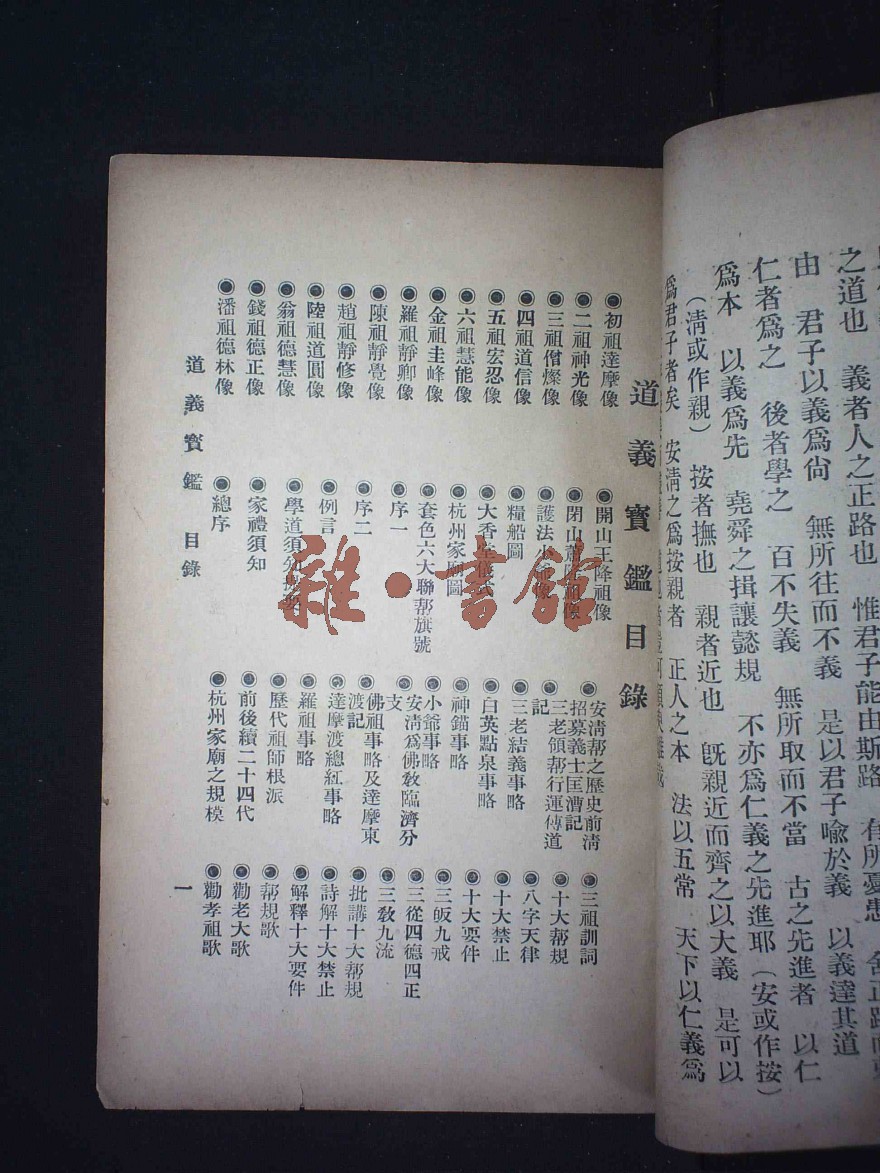 之道也　義者人之正路也　惟君子能由斯路　有所憂患　舍正路而
由　君子以義爲尙　無所往而不義　是以君子喻於義　以義達其道
仁者爲之　後者學之　百不失義　無所取而不當　古之先進者　以仁
爲本　以義爲先　堯舜之揖讓懿規　不亦爲仁義之先進耶（安或作按）
（淸或作親）　按者撫也　親者近也　旣親近而齊之以大義　是可以
爲君子者矣　安淸之爲按親者　正人之本　法以五常　天下以仁義爲
道義寶鑑目錄
◉初祖達摩像
◉二祖神光像
◉三祖僧燦像
◉四祖道信像
◉五祖宏忍像
◉六祖慧能像
◉金祖圭峰像
◉羅祖靜卿像
◉陳祖靜覺像
◉趙祖靜修像
◉陸祖道圓像
◉翁祖德慧像
◉錢祖德正像
◉潘祖德林像
◉開山王降祖像
◉閉山蕭隆祖像
◉護法小爺像
◉糧船圖
◉大香堂儀式
◉杭州家廟圖
◉套色六大聯幇旗號
◉序一
◉序二
◉例言
◉學道須知摘要
◉家禮須知
◉總序
◉安淸幇之歷史前淸
招募義士匡漕記
◉三老領幇行運傳道
記
◉三老結義事略
◉白英點泉事略
◉神錨事略
◉小爺事略
◉安淸爲佛敎臨濟分
支
◉佛祖事略及達摩東
渡記
◉達摩渡總紅事略
◉羅祖事略
◉歷代祖師根派
◉前後續二十四代
◉杭州家廟之規模
◉三祖訓詞
◉十大幇規
◉八字天律
◉十大禁止
◉十大要件
◉三皈九戒
◉三從四德四正
◉三敎九流
◉批講十大幇規
◉詩解十大禁止
◉解釋十大要件
◉幇規歌
◉勸老大歌
◉勸孝祖歌
道義寶鑑　目錄
一
雜·書館